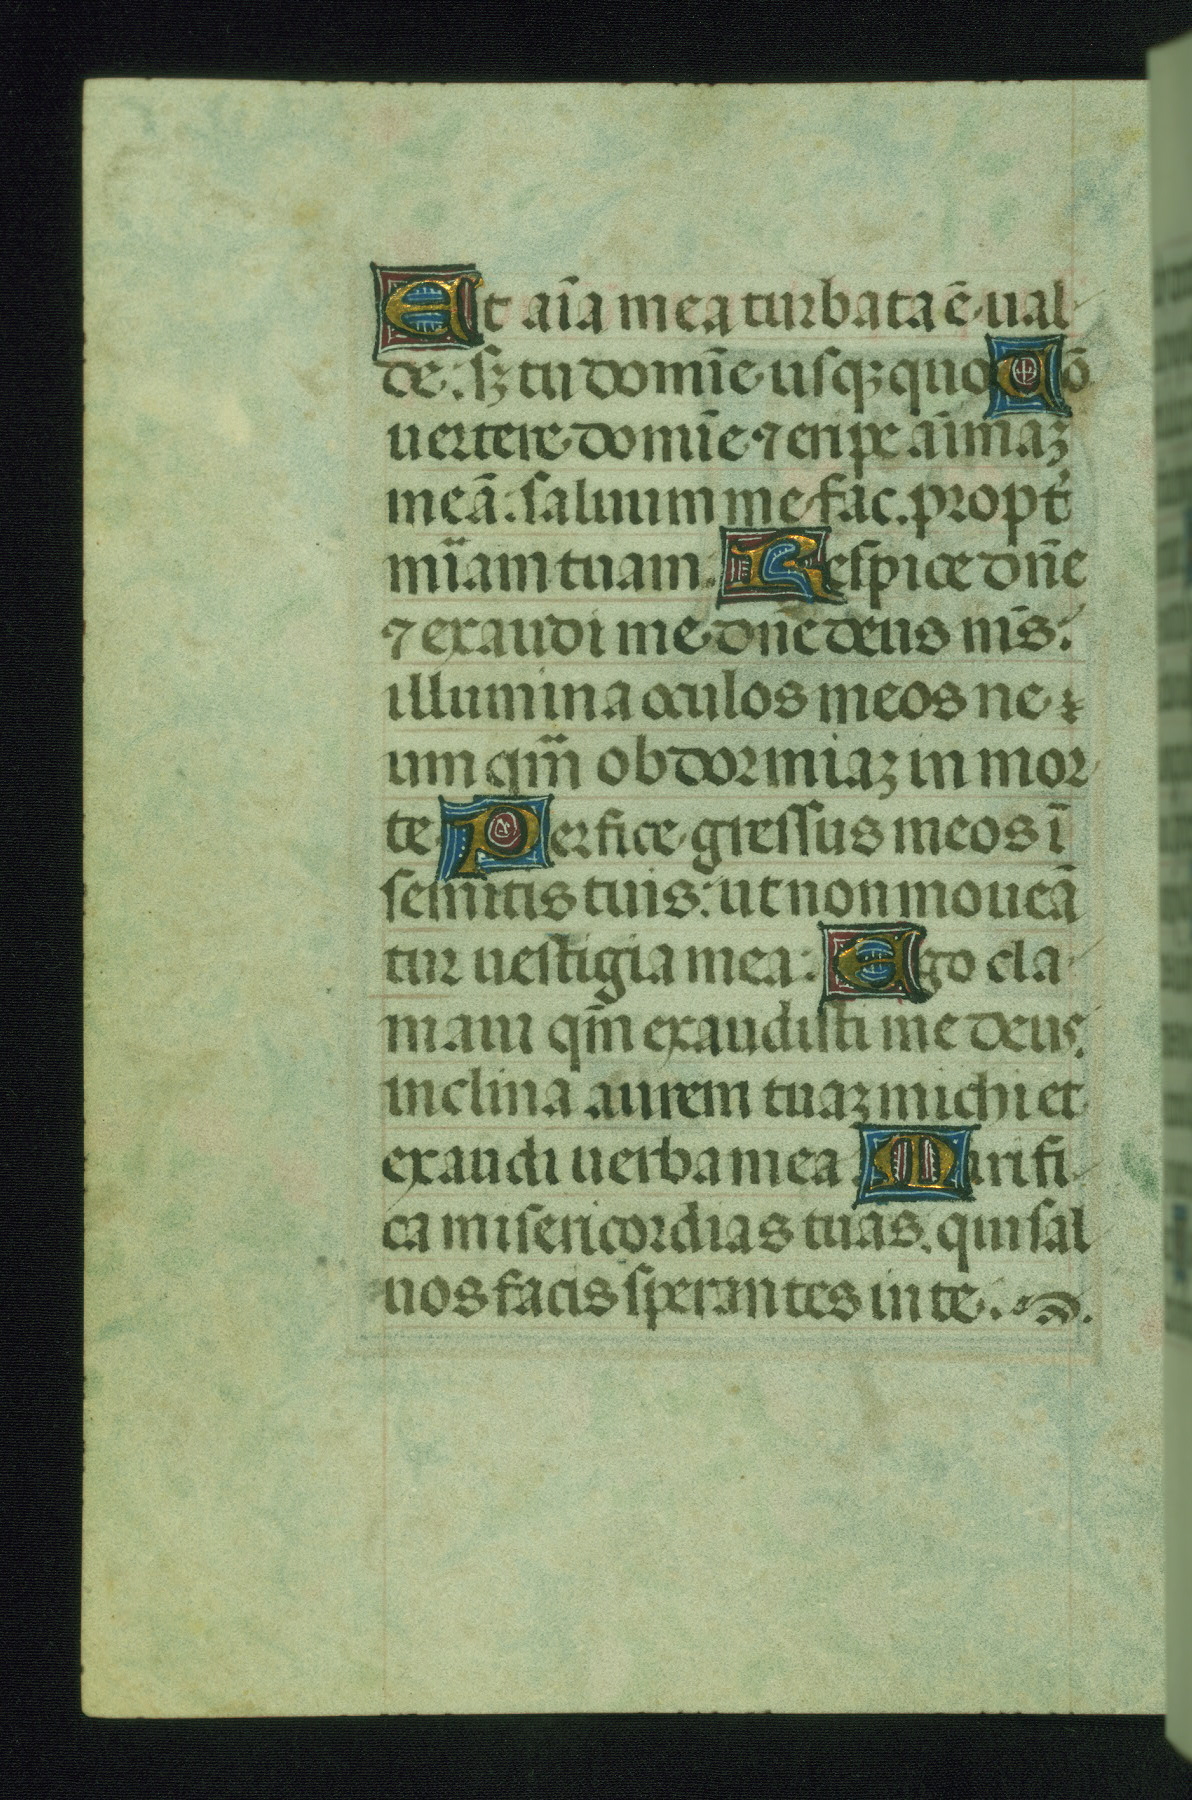 Et aīa mea turbata ē ual
de: sꝫ tu domīe usqꝫ quo Cō
uertere domīe ⁊ eripe aīmaꝫ
meā: saluum me fac. propt᷑
mīam tuam. Respice dn̄e
⁊ exaudi me dn̄e deus m̄s:
illumina oculos meos ne
um qm̄ obdormiaꝫ in mor
te Perfice gressus meos ī
semitis tuis: ut non moueā
tur uestigia mea: Ego cla
maui qm̄ exaudisti me deus:
inclina aurem tuaꝫ michi et
exaudi uerba mea Mirifi
ca misericordias tuas. qui sal
uos facis sperantes in te.